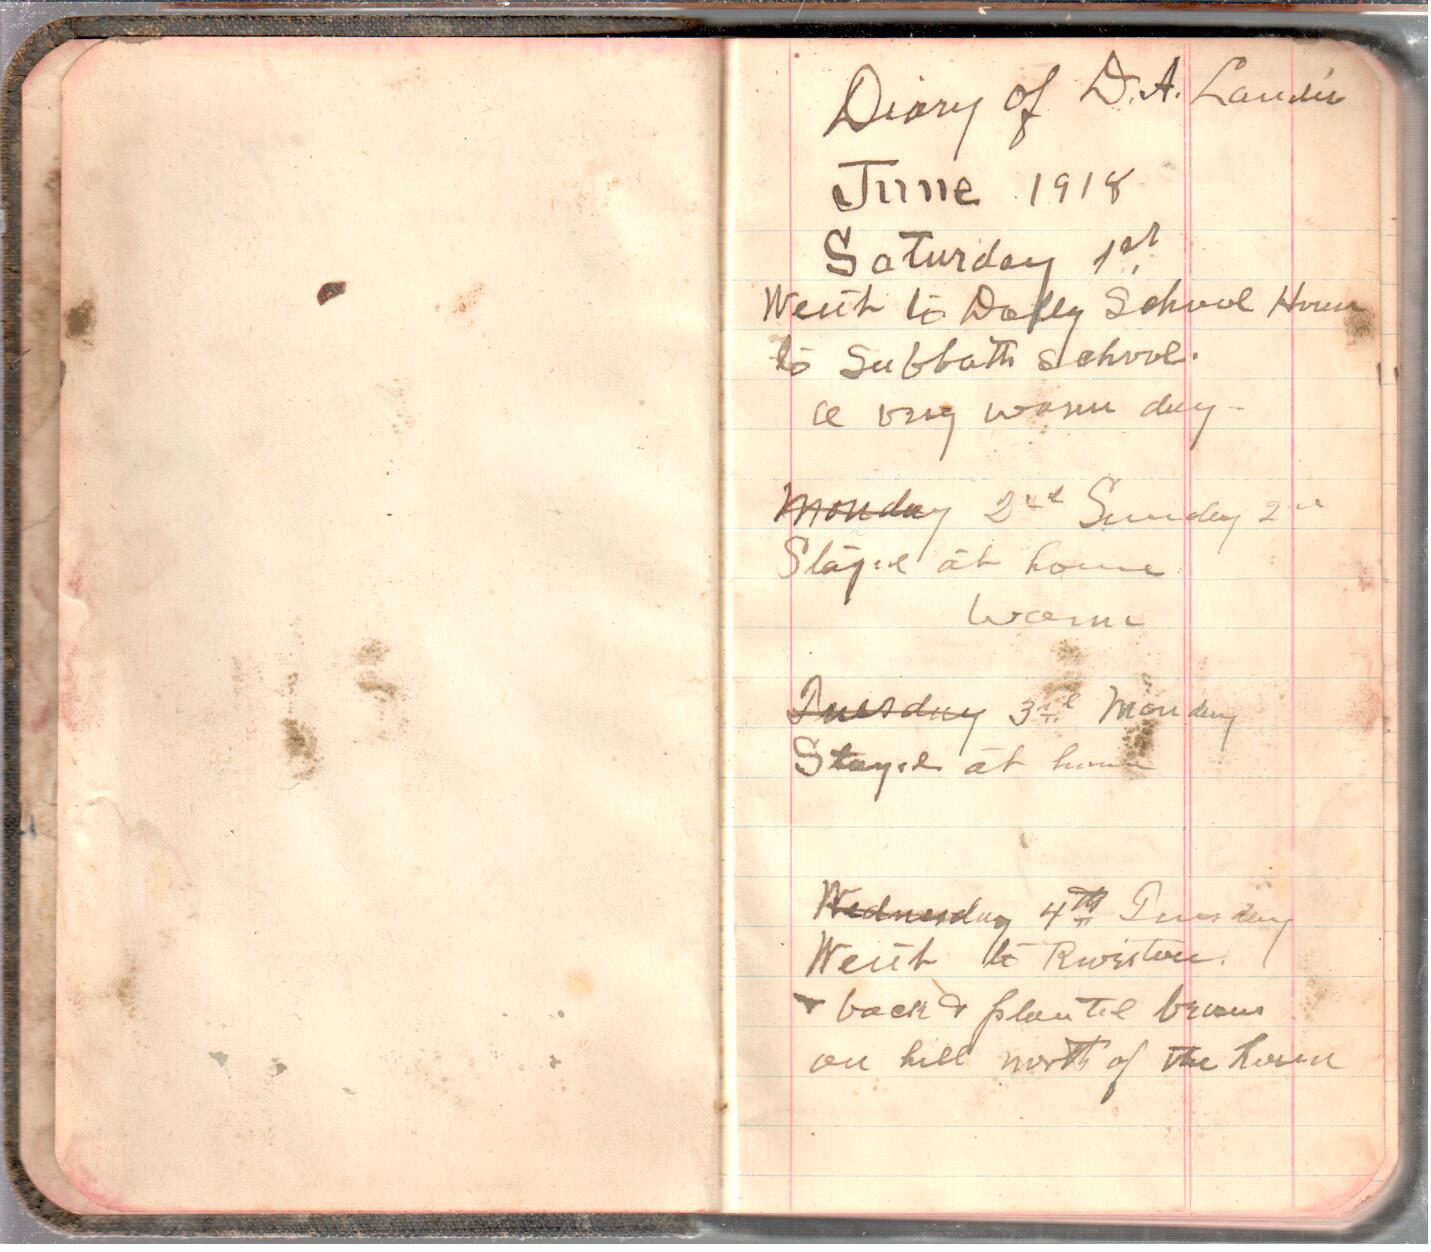 Diary of D. A. Landis
June 1918
Saturday 1st
Went to Dolly School House
to Sabbath school.
a very warm day -
Monday 2nd Sunday 2nd
Stayed at home
Warm
Tuesday 3rd Monday
Stayed at home
Wednesday 4th Tuesday
Went to
& back & planted beans
on hill north of the house